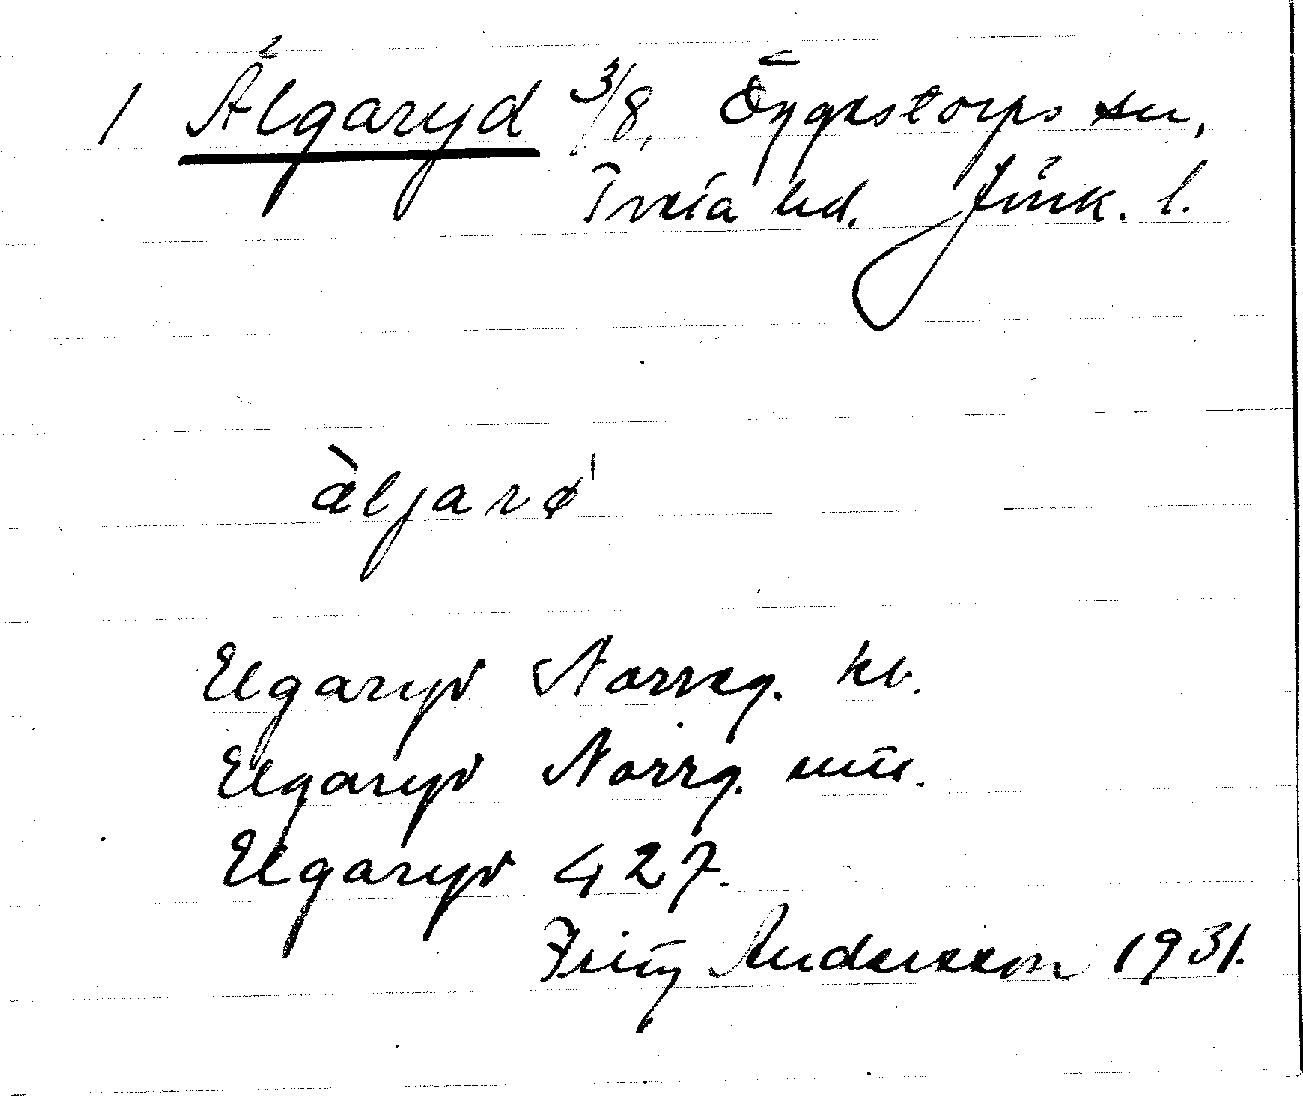 1 Älgaryd 3/8, Öggestorps sn,
Tveta hd. Jönk. l.
àljarø̍
Elgaryd Norreg. kb.
Elgaryd Norrg. min.
Elgaryd 427.
Fritz Andersson 1931.